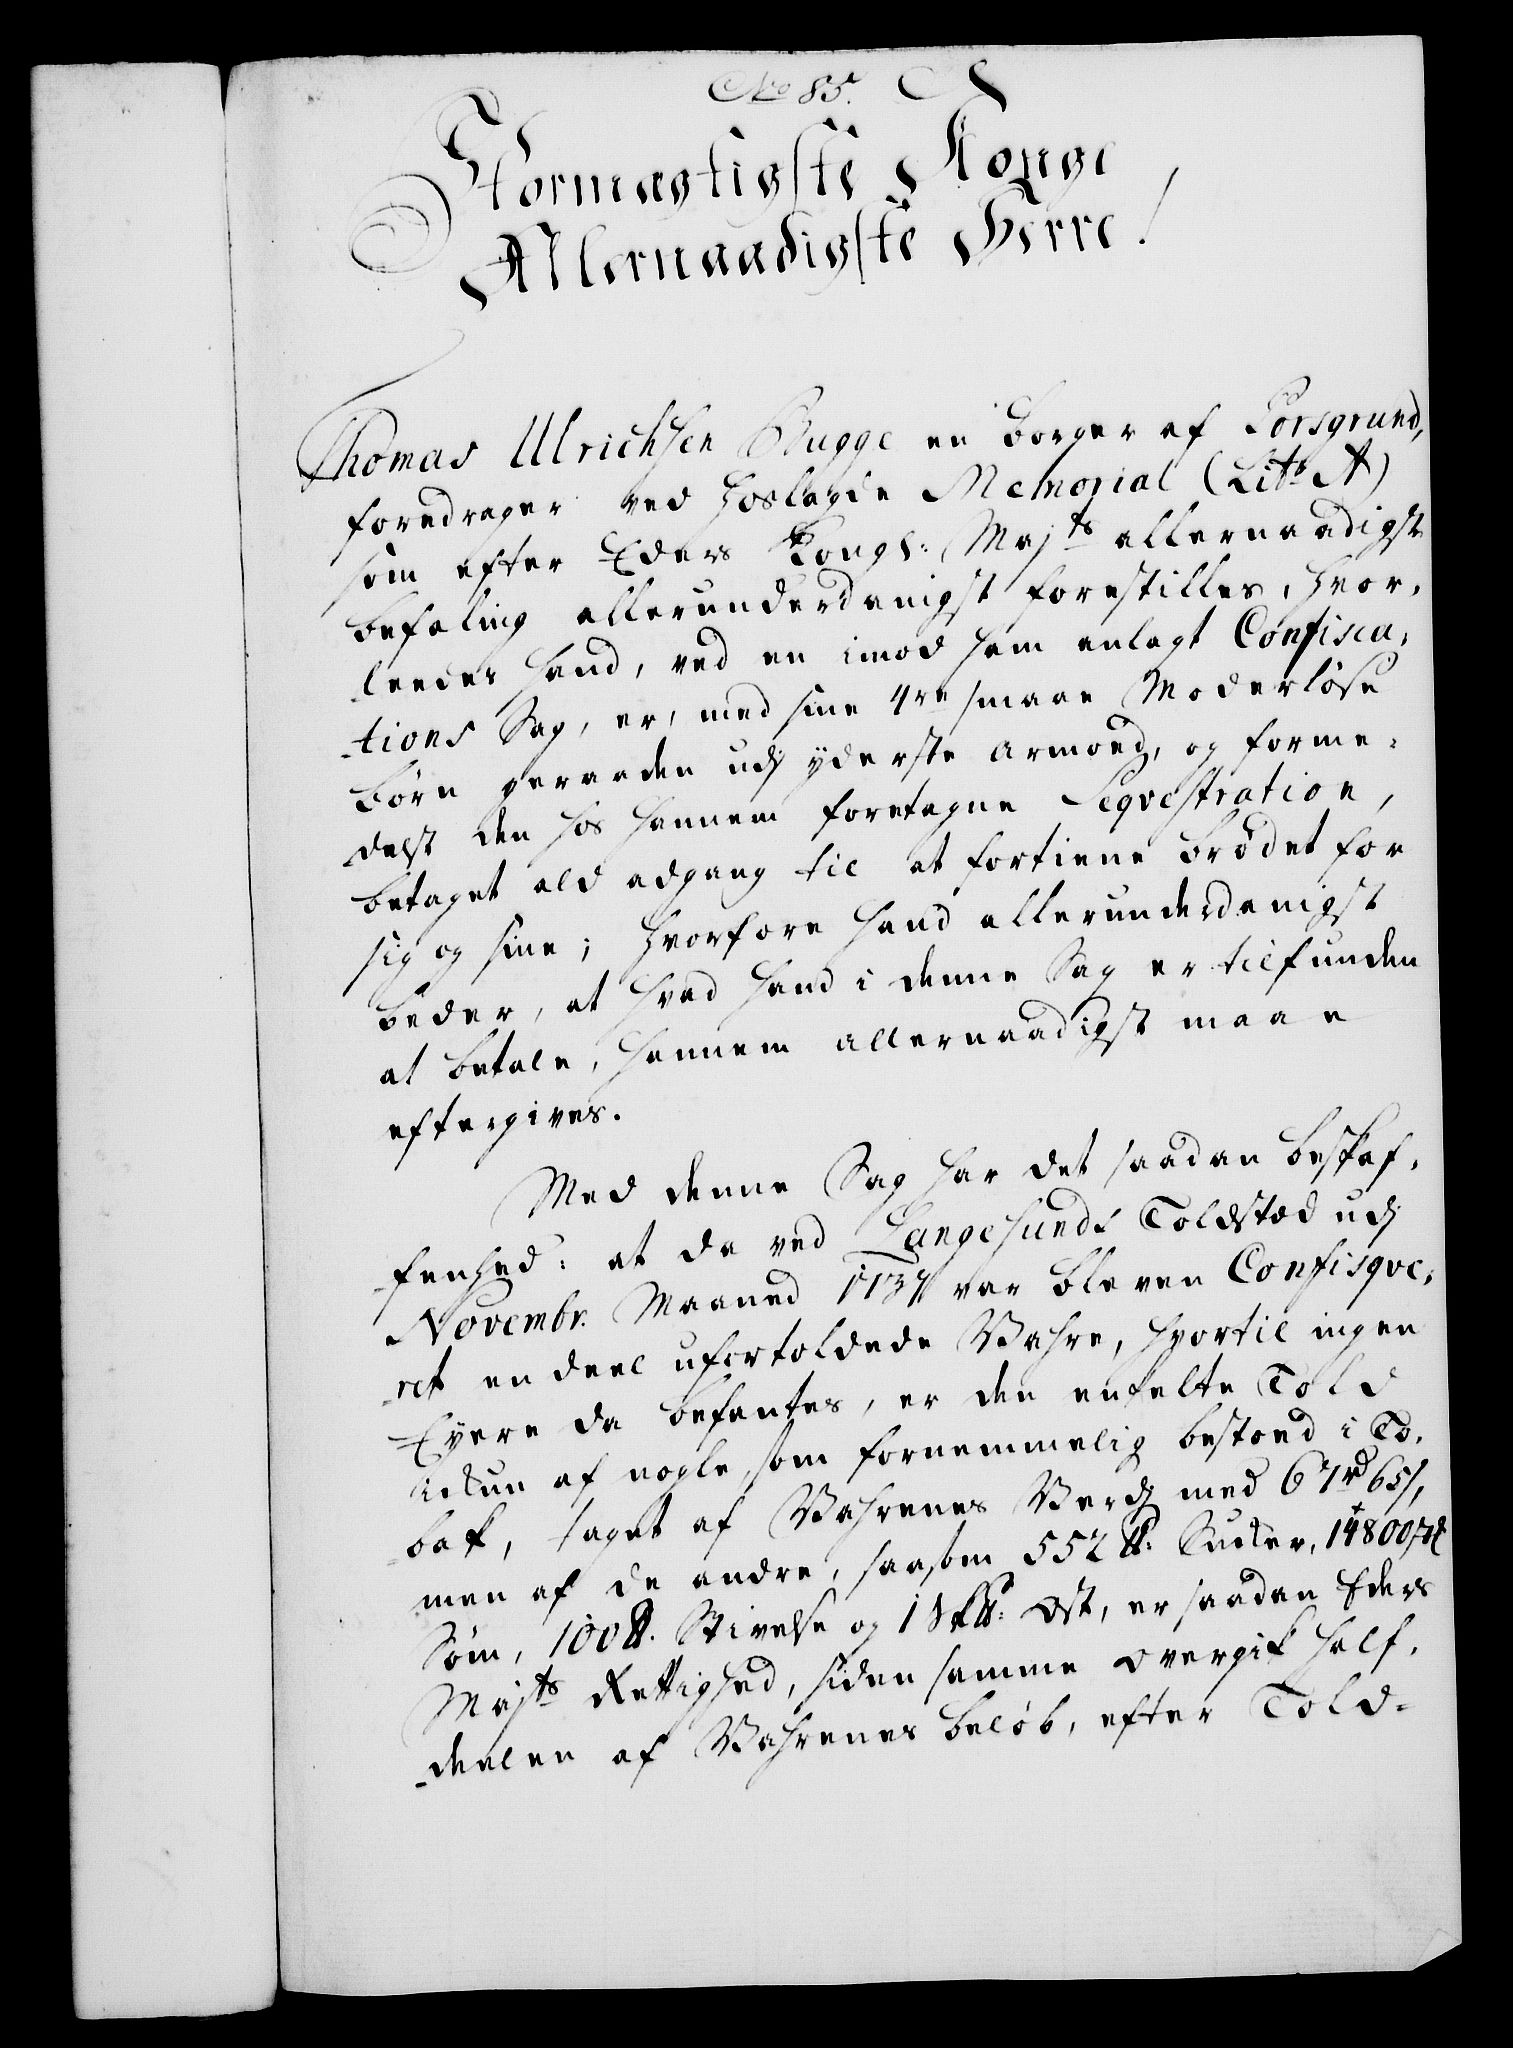 No 85.
Stormægtigste Konge
Allernaadigste Herre!
Thomas Ulrichsen Bugge en borger af Porsgrund,
foredrager ved hoslagde Memorial (Litr A)
som efter Eders Kongl: Majts allernaadigste
befaling allerunderdanigst forestilles, hvor-
leedes hand, ved en imod ham anlagt Confisca-
tions Sag, er, med sine 4re smaae Moderløse
børn geraaden udj yderste armoed, og forme-
delst den hos hannem foretagne Seqvestration,
betaget ald adgang til at fortiene brødet for
sig og sine; hvorfore hand allerunderdanigst
beder, at hvad hand i denne Sag er tilfunden
at betale, hannem allernaadigst maae
eftergives.
Med denne Sag har det saadan beskaf-
fenhed: at da ved Langesunds Toldsted udj
Novembr. Maaned 1737 var bleven Confisqve-
ret en deel ufortoldede Wahre, hvortil ingen
Eyere da befantes, er den enkelte Told
ickun af nogle, som fornemmelig bestoed i To-
bak, taget af Wahrenes Verdj med 67 rd 65 s,
men af de andre, saasom 552 lb: Sucker, 14800 st
Søm, 100 lb. Stivelse og 1 Sklb: Ost, er saadan Eders
Majts Rettighed, siden samme overgik half-
deelen af Wahrenes beløb, efter Told-